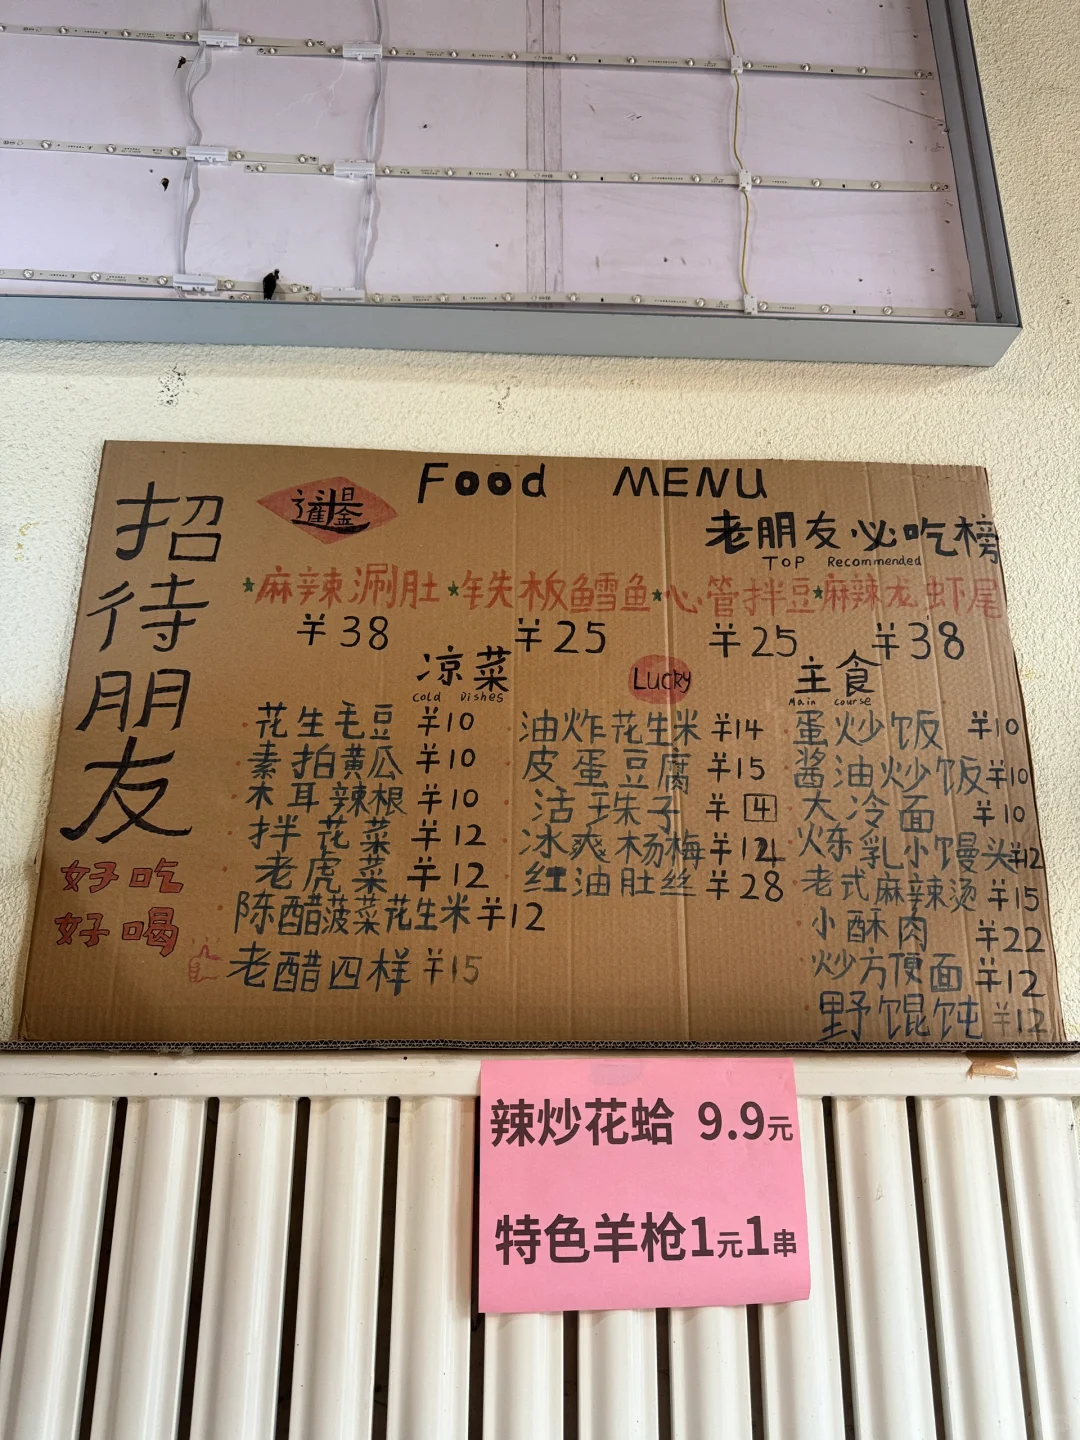 招待朋友
好吃
好喝
Food MENU
老朋友必吃榜
TOP Recommended
★麻辣涮肚 ★铁板鳕鱼 ★心管拌豆 ★麻辣龙虾尾
¥38 ¥25 ¥25 ¥38
凉菜
Cold Dishes
花生毛豆 ¥10
素拍黄瓜 ¥10
木耳辣根 ¥10
拌花菜 ¥12
老虎菜 ¥12
陈醋菠菜花生米 ¥12
老醋四样 ¥15
Lucky
油炸花生米 ¥14
皮蛋豆腐 ¥15
活珠子 ¥4
冰爽杨梅
红油肚丝 ¥28
主食
Main course
蛋炒饭 ¥10
酱油炒饭 ¥10
大冷面 ¥10
炼乳小馒头 ¥12
老式麻辣烫 ¥15
小酥肉 ¥22
炒方便面 ¥12
野馄饨 ¥12
辣炒花蛤 9.9元
特色羊枪1元1串